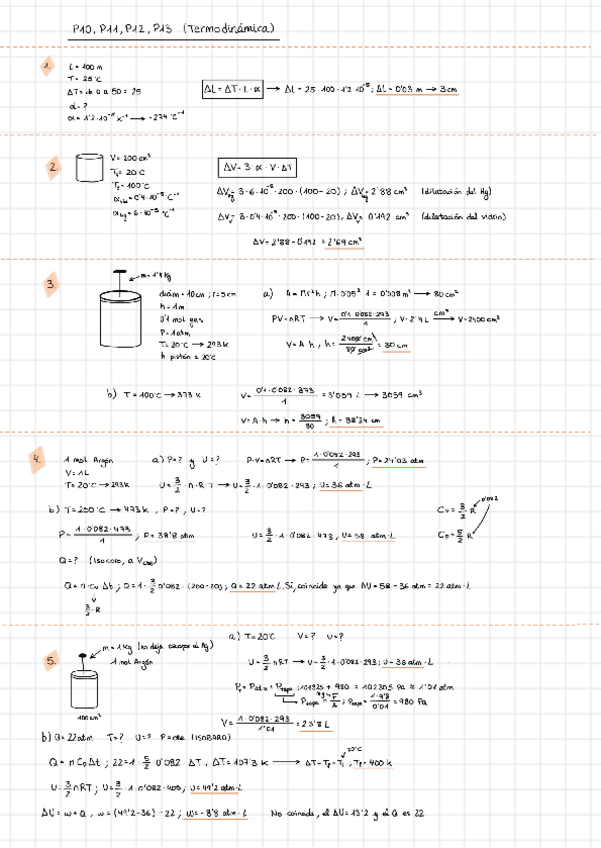 P10, P11, P12, P13 (Termodinámica)
1.
L = 100 m
T = 25°C
ΔT = de 0 a 50 = 25
α = ?
α = 1'2·10⁻⁵ K⁻¹ → -274°C⁻¹
ΔL = ΔT · L · α → ΔL = 25 · 100 · 1'2·10⁻⁵ ; ΔL = 0'03 m → 3 cm
2
V = 200 cm³
T₁ = 20°C
T₂ = 100°C
ΔV = 3 · α · V · ΔT
ΔV = 3 · 6·10⁻⁵ · 200 · (100-20) ; ΔV = 2'88 cm³ (dilatación del Hg)
ΔV = 3 · 0'4·10⁻⁵ · 200 · (100-20), ΔV = 0'192 cm³ (dilatación del vidrio)
ΔV = 2'88 - 0'192 = 2'69 cm³
3
diám = 10 cm ; r = 5 cm
h = 1 m
0'1 mol gas
P = 1 atm
T = 20°C → 293 K
h pistón = 20°C
a) A = πr²h ; π · 0'05² · 1 = 0'008 m³ → 80 cm²
PV = nRT → V = 0'1 · 0'082 · 293 / 1 ; V = 2'4 L → cm³ V = 2400 cm³
V = A · h , h = 2400 cm³ / 80 cm² = 30 cm
b) T = 100°C → 373 K
V = 0'1 · 0'082 · 373 / 1 = 3'059 L → 3059 cm³
V = A · h → h = 3059 / 80 ; h = 38'24 cm
4.
1 mol Argón
V = 1L
T = 20°C → 293K
a) P = ? y U = ?
P · V = nRT → P = 1 · 0'082 · 293 / 1 ; P = 24'03 atm
U = 3/2 · n · R · T → U = 3/2 · 1 · 0'082 · 293 ; U = 36 atm · L
b) T = 200°C → 473 K , P = ? , U = ?
P = 1 · 0'082 · 473 / 1 ; P = 38'8 atm
U = 3/2 · 1 · 0'082 · 473 , U = 58 atm · L
Cv = 3/2 R
0'082
Cp = 5/2 R
Q = ? (Isocoro, a V cte)
Q = n · Cv Δt ; Q = 1 · 3/2 0'082 · (200-20) ; Q = 22 atm L. Sí, coincide ya que ΔU = 58 - 36 atm = 22 atm·L
3/2 · R
5.
m = 1 kg (no deja escapar el Ag)
1 mol Argón
100 cm²
a) T = 20°C V = ? U = ?
U = 3/2 nRT → U = 3/2 · 1 · 0'082 · 293 ; U = 36 atm · L
101325 + 980 = 102305 Pa ≈ 1'01 atm
P tapa = F/A ; P tapa = 1·9'8 / 0'01 = 980 Pa
V = 1 · 0'082 · 293 / 1'01 = 23'8 L
b) Q = 22 atm T = ? U = ? P = cte (ISOBARO)
Q = n Cp Δt ; 22 = 1 · 5/2 · 0'082 · ΔT , ΔT = 107'3 K → ΔT = T₂ - T₁ ; T₂ = 400 K
20°C
U = 3/2 nRT ; U = 3/2 · 1 · 0'082 · 400 ; U = 49'2 atm · L
ΔU = w + Q , w = (49'2 - 36) - 22 ; w = -8'8 atm · L No coincide, el ΔU = 13'2 y el Q es 22